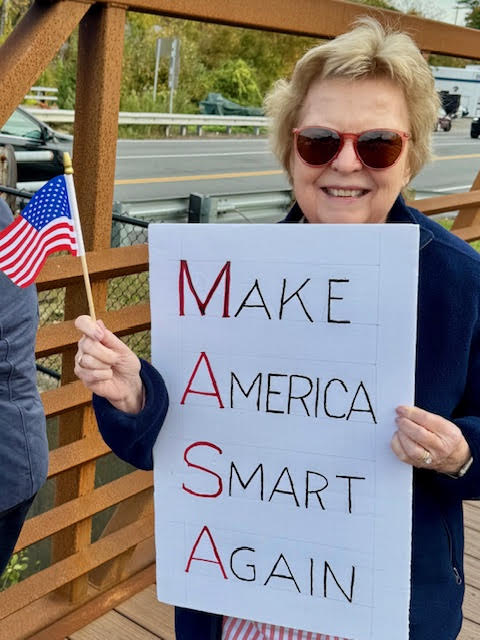 MAKE
AMERICA
SMART
AGAIN